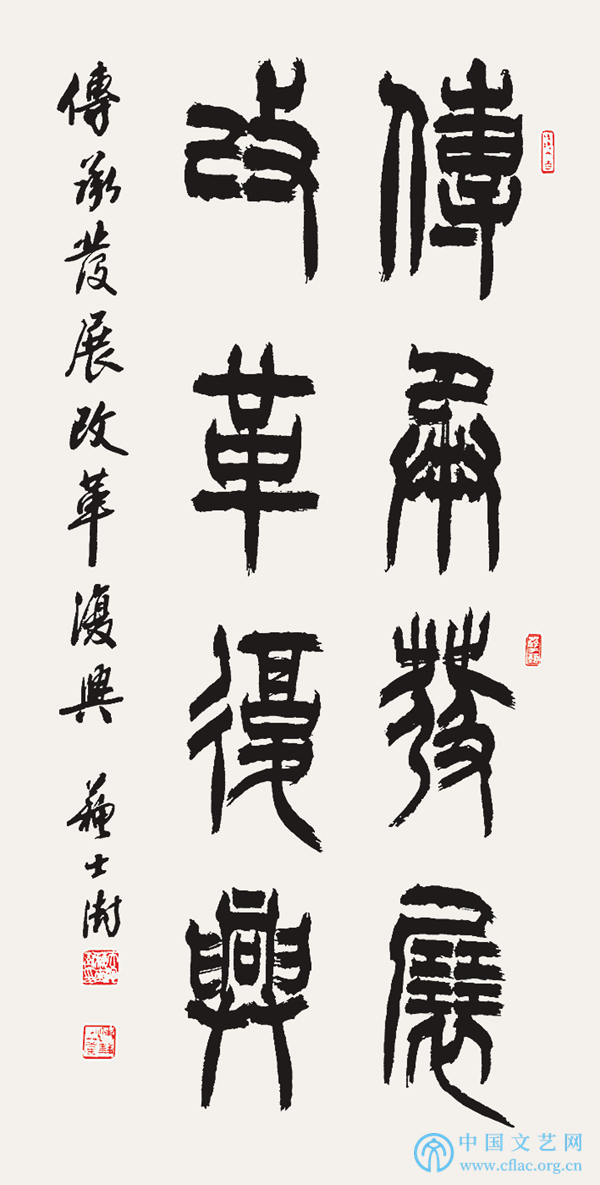 傳承發展
改革復興
傳承發展改革復興 蘇士澍
中国文艺网
www.cflac.org.cn